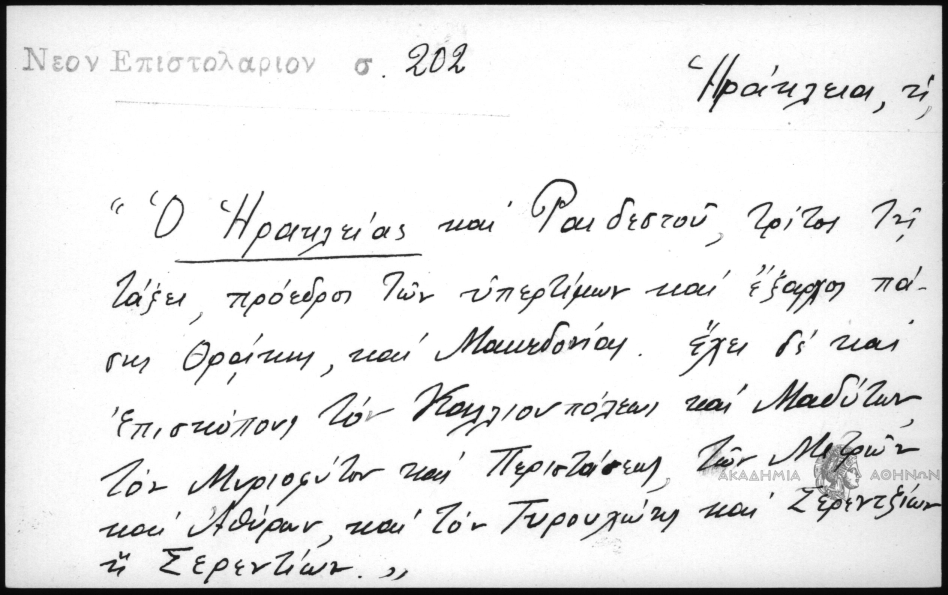 Νεον Επιστολαριον σ. 202
Ἡράκλεια, ἡ,
“Ὁ Ἡρακλείας καὶ Ῥαιδεστοῦ, τρίτος τῇ
τάξει, πρόεδρος τῶν ὑπερτίμων καὶ ἔξαρχος πά-
σης Θρᾴκης, καὶ Μακεδονίας. ἔχει δὲ καὶ
ἐπισκόπους τὸν Καλλιουπόλεως καὶ Μαδύτων,
τὸν Μυριοφύτου καὶ Περιστάσεως, τῶν Μετρῶν
ΑΚΑΔΗΜΙΑ ΑΘΗΝΩΝ
καὶ Ἀθύρων, καὶ τὸν Τυρουλώης καὶ Σερεντζίων
ἢ Σερεντίων.„